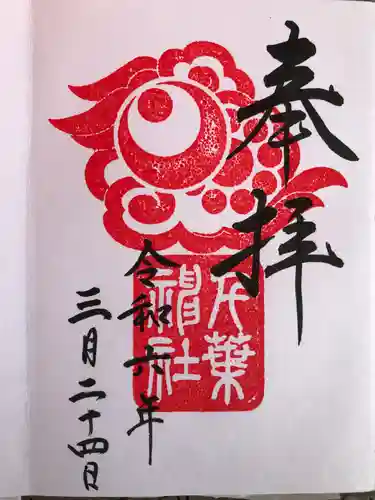 奉拝
片葉
神社
令和六年
三月二十四日